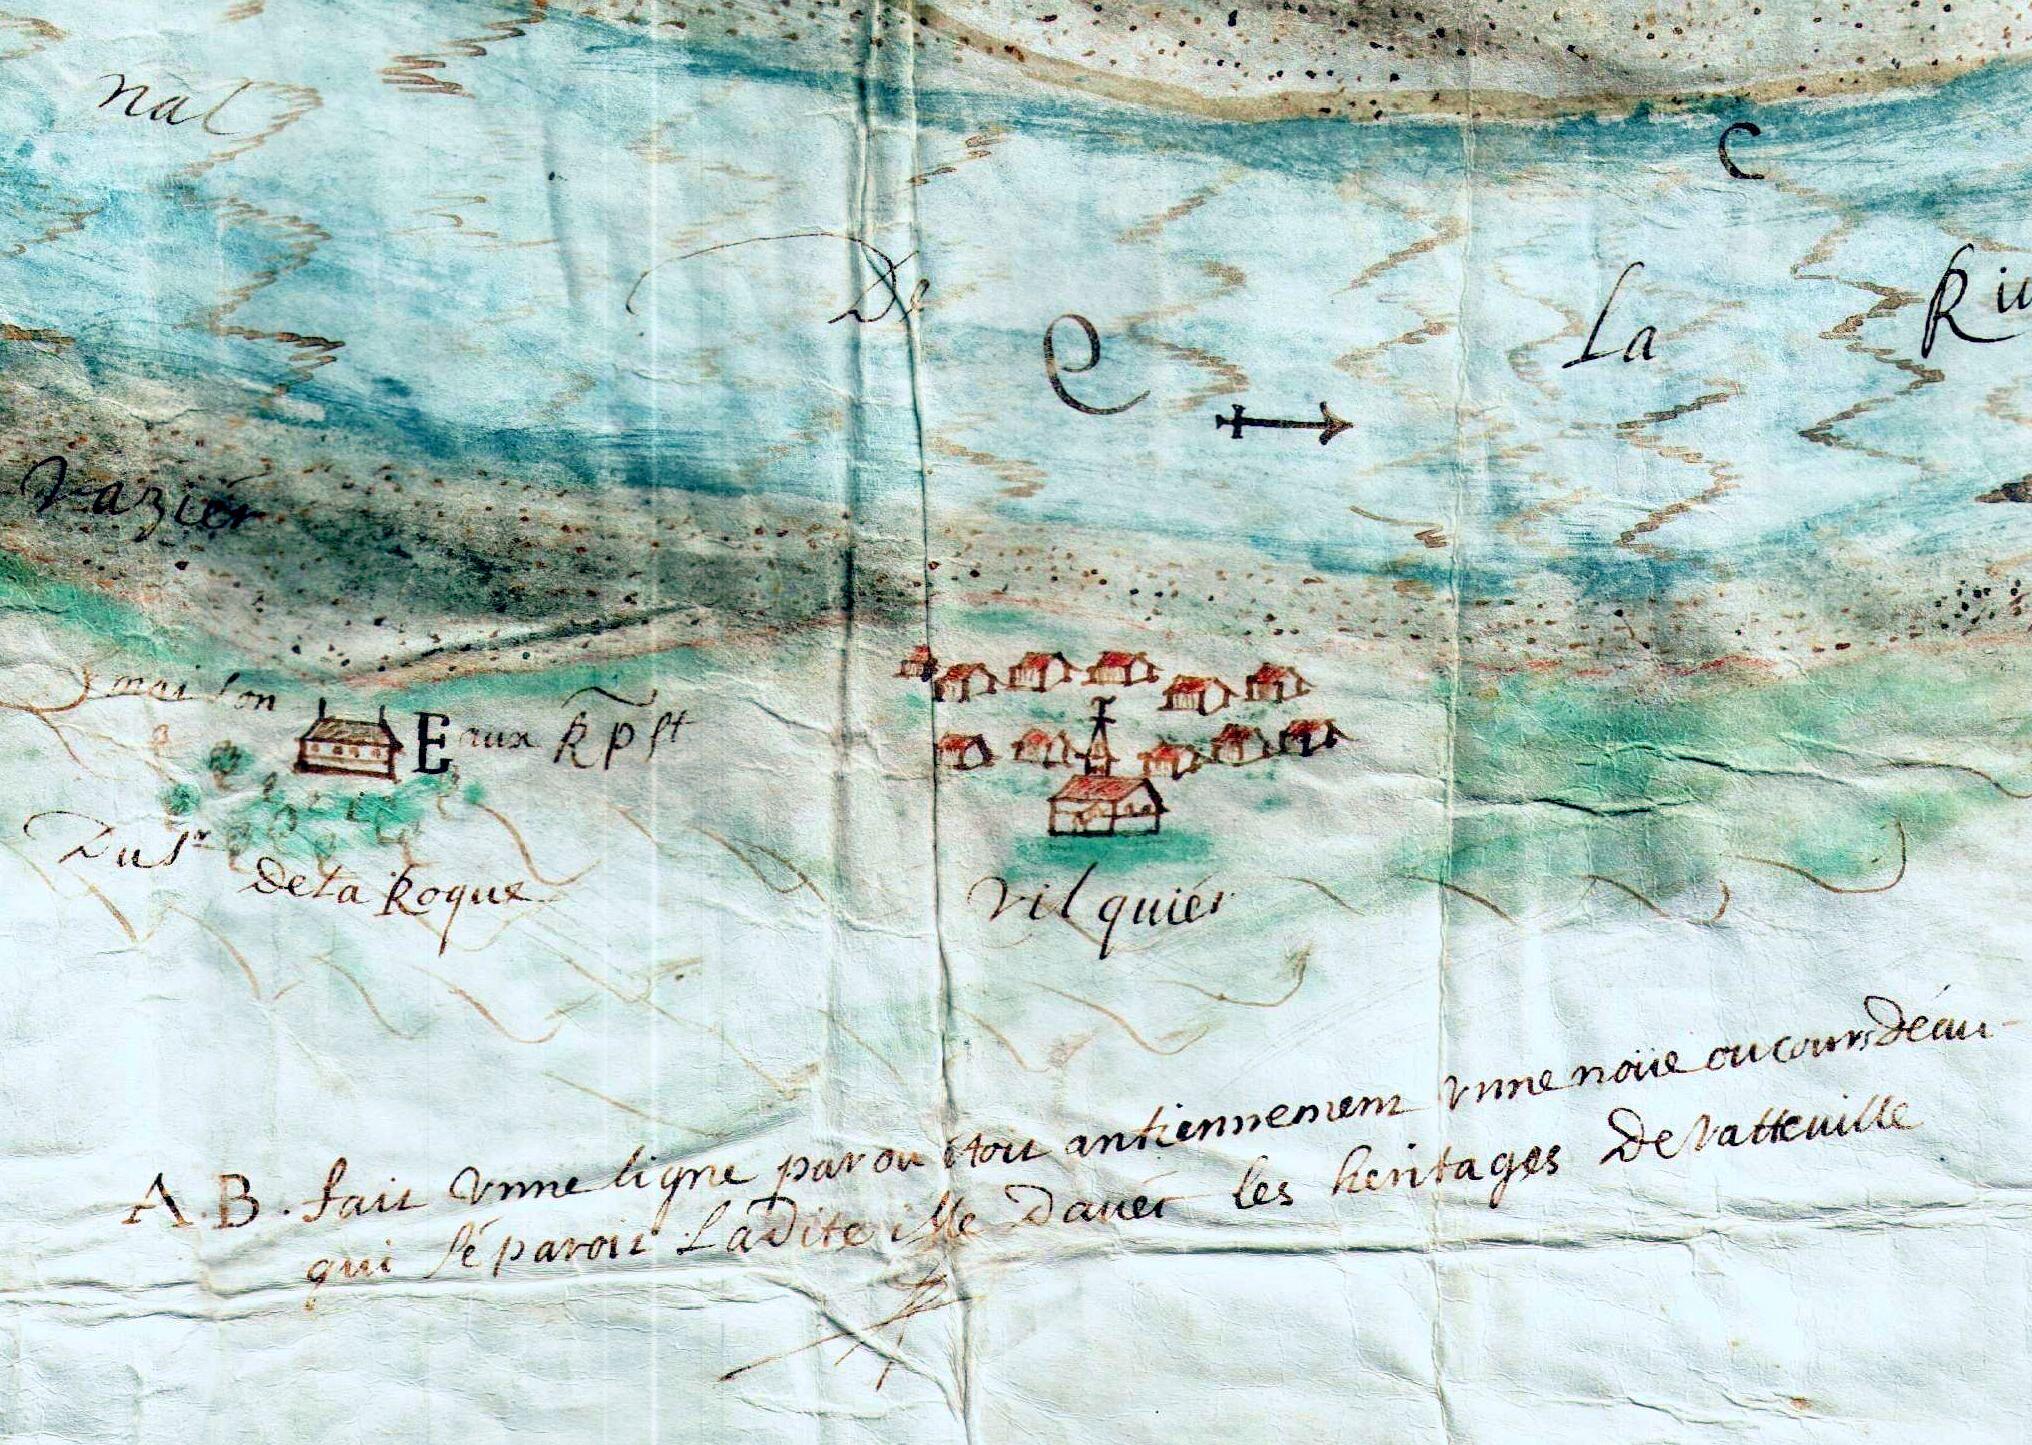 nal
C
De
La
Riu
e
vazier
maison
E aux R p st
Du Sr
de la Roque
vilquier
A.B. fait vnne ligne par ou étoit antiennement vnne noüe ou cours déau
qui séparoit Ladite isle Dauec les heritages De vatteuille